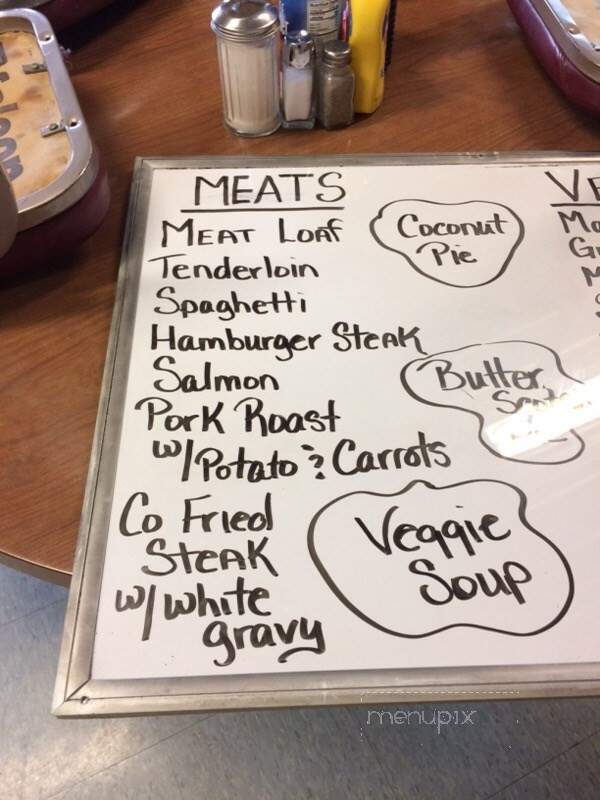 MEATS
MEAT LOAF
Tenderloin
Spaghetti
Hamburger STEAK
Salmon
Pork Roast
w/Potato & Carrots
Co Fried
STEAK
w/white
gravy
Coconut
Pie
Butter
Veggie
Soup
VE
Ma
G
M
menupix